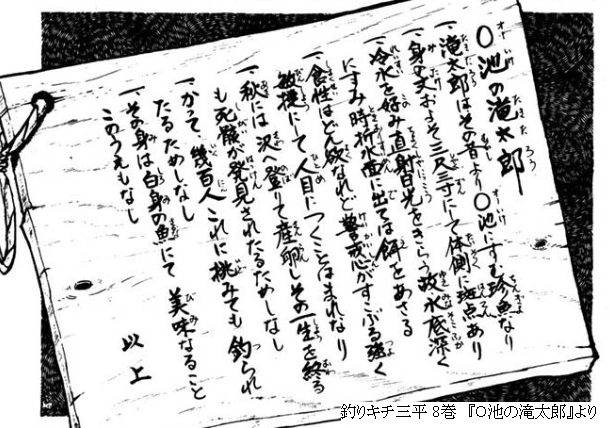 ○池の滝太郎
一、滝太郎はその昔より○池にすむ珍魚なり
一、身の丈およそ三尺三寸にて体側に斑点あり
一、冷水を好み直射日光をきらう故水底深く
にすみ時折水面に出ては餌をあさる
一、食性はどん欲なれど警戒心がすこぶる強く
敏捷にて人目につくことはまれなり
一、秋には沢へ登りて産卵しその一生を終る
も死骸が発見されたるためしなし
一、かって、幾百人これに挑みても釣られ
たるためしなし
一、その身は白身の魚にて美味なること
このうえもなし
以上
釣りキチ三平 8巻 『○池の滝太郎』より